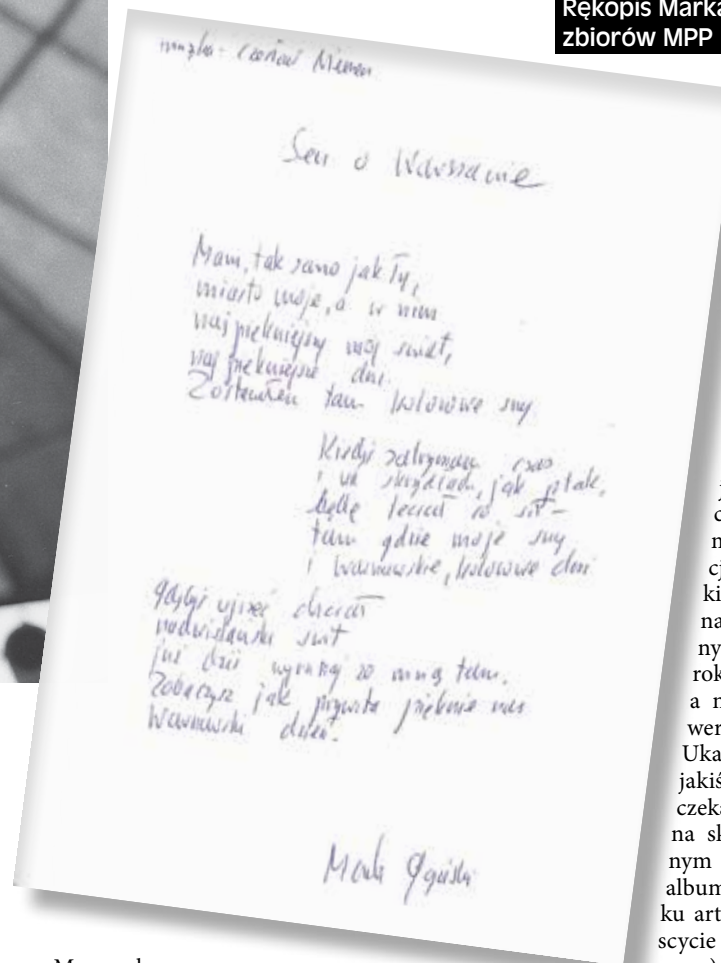 Rękopis Marka
zbiorów MPP
muzyka - Czesław Niemen
Sen o Warszawie
Mam, tak samo jak Ty,
miasto moje, a w nim
najpiękniejszy mój świat,
najpiękniejsze dni.
Zostawiłem tam kolorowe sny
Kiedyś zatrzymam czas
i na skrzydłach, jak ptak,
będę leciał co sił -
tam gdzie moje sny
i warszawskie, kolorowe dni
Gdybyś ujrzeć chciał
nadwiślański świt
już dziś wyruszaj ze mną tam.
Zobaczysz jak przywita pięknie nas
Warszawski dzień.
Marek Gaszyński
cj
ki
na
ny
rok
a n
wer
Uka
jakiś
czeka
na sk
nym
album
ku art
scycie